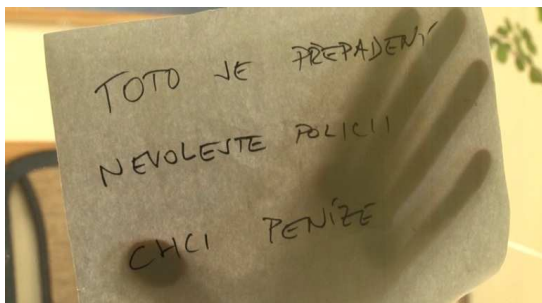 TOTO JE PŘEPADENÍ
NEVOLEJTE POLICII
CHCI PENÍZE